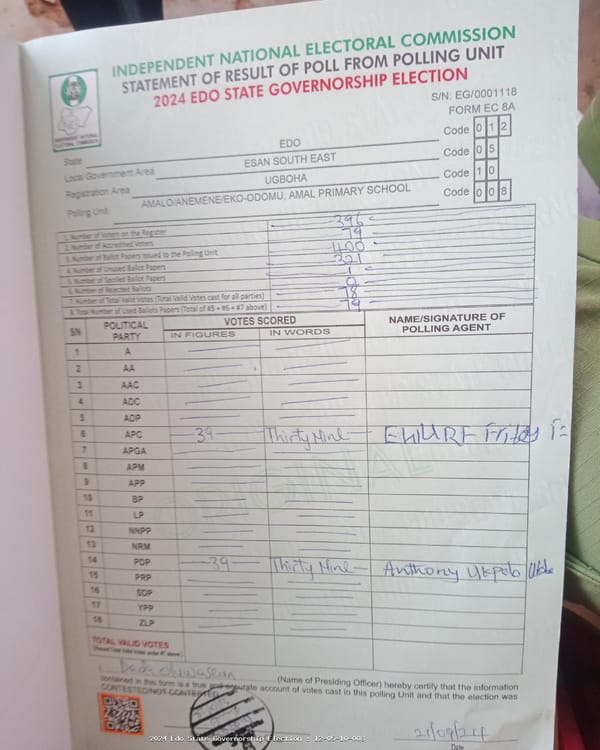 INDEPENDENT NATIONAL ELECTORAL COMMISSION
STATEMENT OF RESULT OF POLL FROM POLLING UNIT
2024 EDO STATE GOVERNORSHIP ELECTION
S/N: EG/0001118
FORM EC 8A
INDEPENDENT NATIONAL ELECTORAL COMMISSION
State EDO Code 0 1 2
Local Government Area ESAN SOUTH EAST Code 0 5
Registration Area UGBOHA Code 1 0
Polling Unit AMALO/ANEMENE/EKO-ODOMU, AMAL PRIMARY SCHOOL Code 0 0 8
1. Number of Voters on the Register 396
2. Number of Accredited Voters 79
3. Number of Ballot Papers Issued to the Polling Unit 400
4. Number of Unused Ballot Papers 321
5. Number of Spoiled Ballot Papers 1
6. Number of Rejected Ballots 0
7. Number of Total Valid Votes (Total Valid Votes cast for all parties) 78
8. Total Number of Used Ballots Papers (Total of #5 + #6 + #7 above) 79
SN POLITICAL PARTY VOTES SCORED NAME/SIGNATURE OF POLLING AGENT
IN FIGURES IN WORDS
1 A
2 AA
3 AAC
4 ADC
5 ADP
6 APC 39 Thirty Nine
7 APGA
8 APM
9 APP
10 BP
11 LP
12 NNPP
13 NRM
14 PDP 39 Thirty Nine Anthony
15 PRP
16 SDP
17 YPP
18 ZLP
ORIGINAL
TOTAL VALID VOTES
(Name of Presiding Officer) hereby certify that the information
contained in this form is a true and accurate account of votes cast in this polling Unit and that the election was
CONTESTED/NOT CONTESTED
21/09/24
Date
2024 Edo State Governorship Election : 12-05-10-008